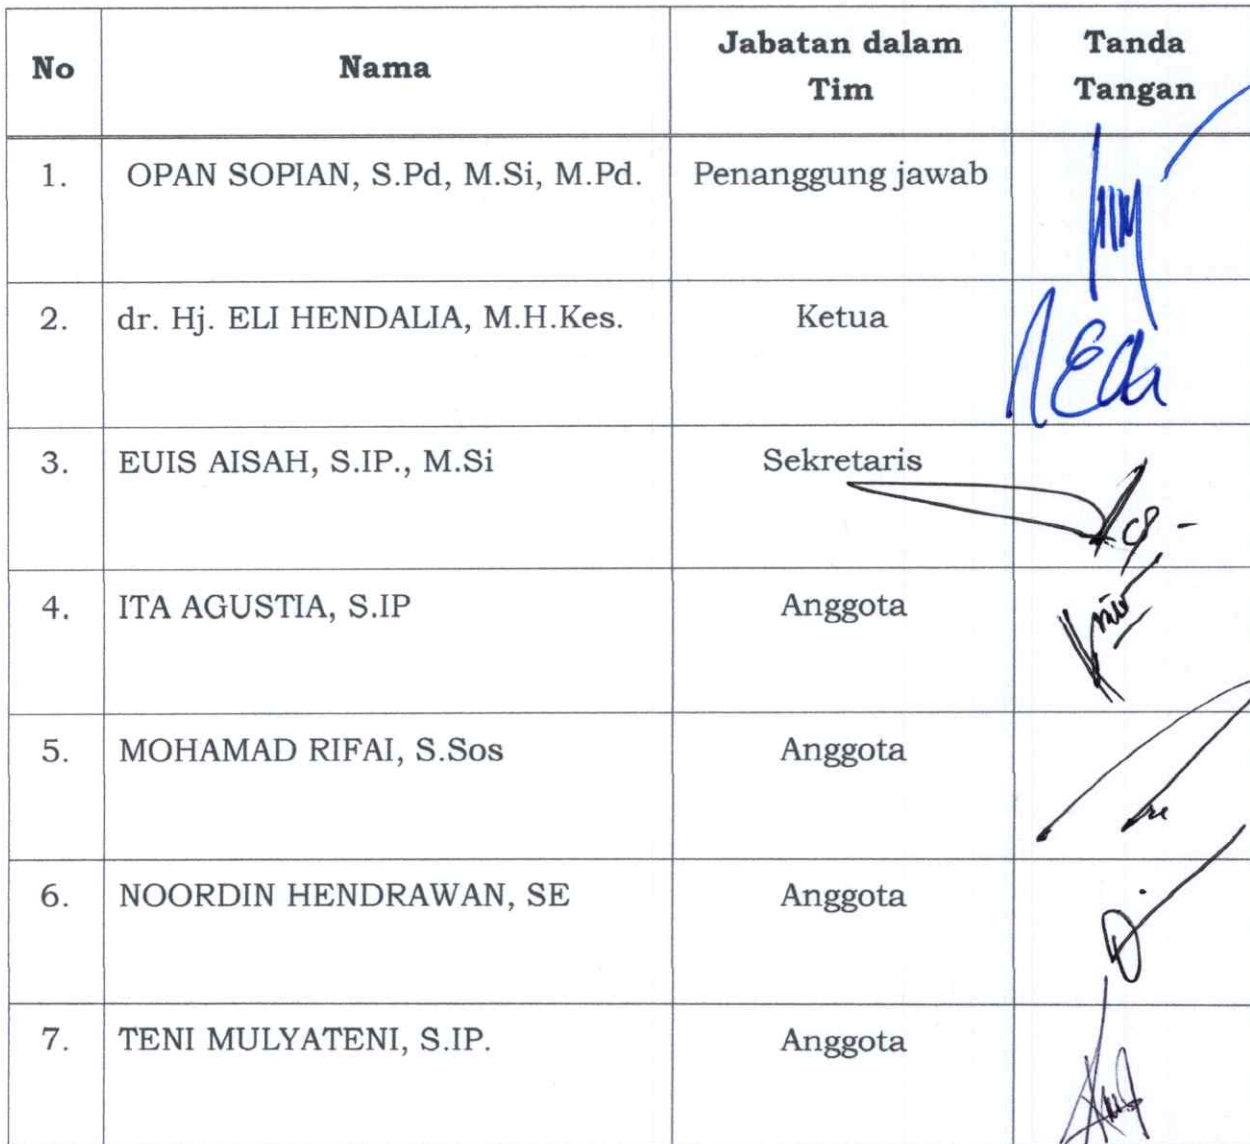 No Nama Jabatan dalam Tim Tanda Tangan
1. OPAN SOPIAN, S.Pd, M.Si, M.Pd. Penanggung jawab
2. dr. Hj. ELI HENDALIA, M.H.Kes. Ketua
3. EUIS AISAH, S.IP., M.Si Sekretaris
4. ITA AGUSTIA, S.IP Anggota
5. MOHAMAD RIFAI, S.Sos Anggota
6. NOORDIN HENDRAWAN, SE Anggota
7. TENI MULYATENI, S.IP. Anggota